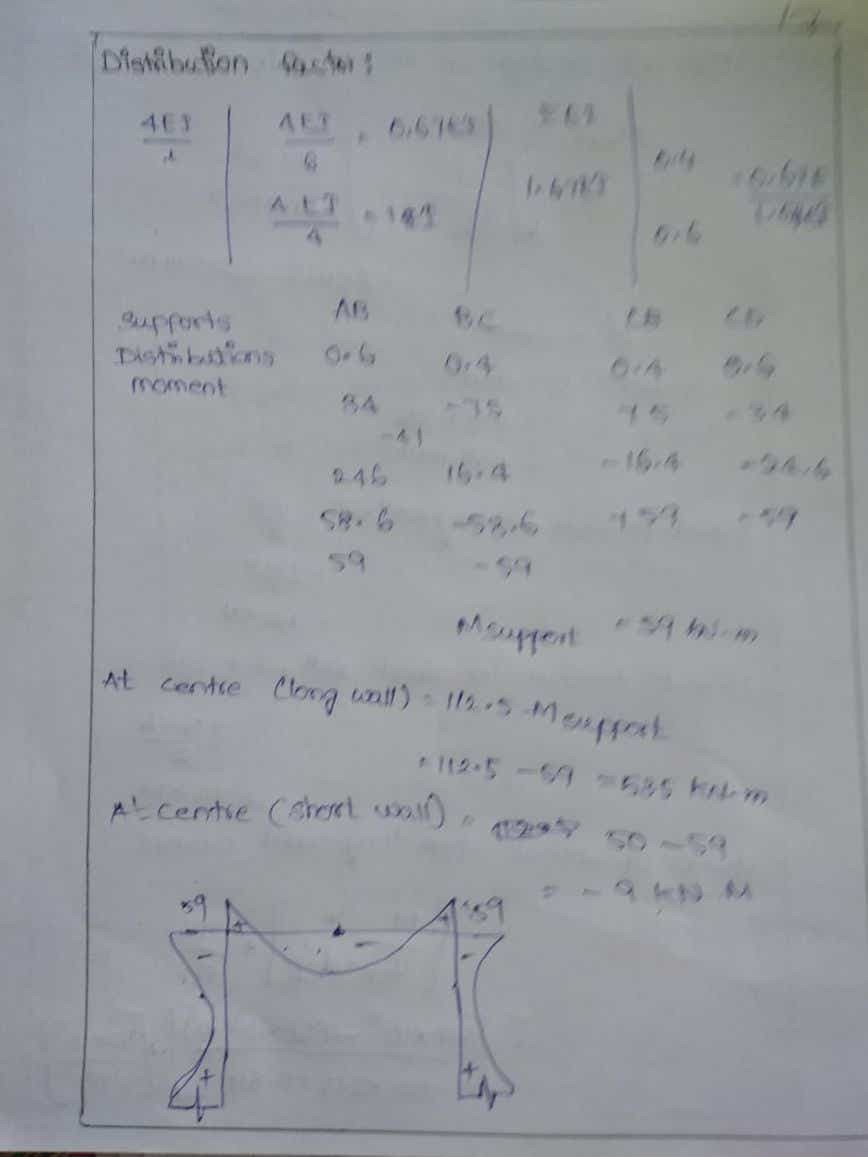 Distribution factor:
4EI 4EI = 0.67EI ΣEI 0.4 = 0.67E
6 1.67EI 1.67EI
4EI = 1EI 0.6
4
Supports AB BC CB CD
Distributions 0.6 0.4 0.4 0.6
moment
34 -75 75 -34
-41
246 16.4 -16.4 -24.6
58.6 -58.6 +59 -59
59 -59
Msupport = 59 kN-m
At centre (long wall) = 112.5 - Msupport
= 112.5 - 59 = 535 kN-m
At centre (short wall) = 50 - 59
= - 9 kN M
59 59
+ +
- - -
+ +